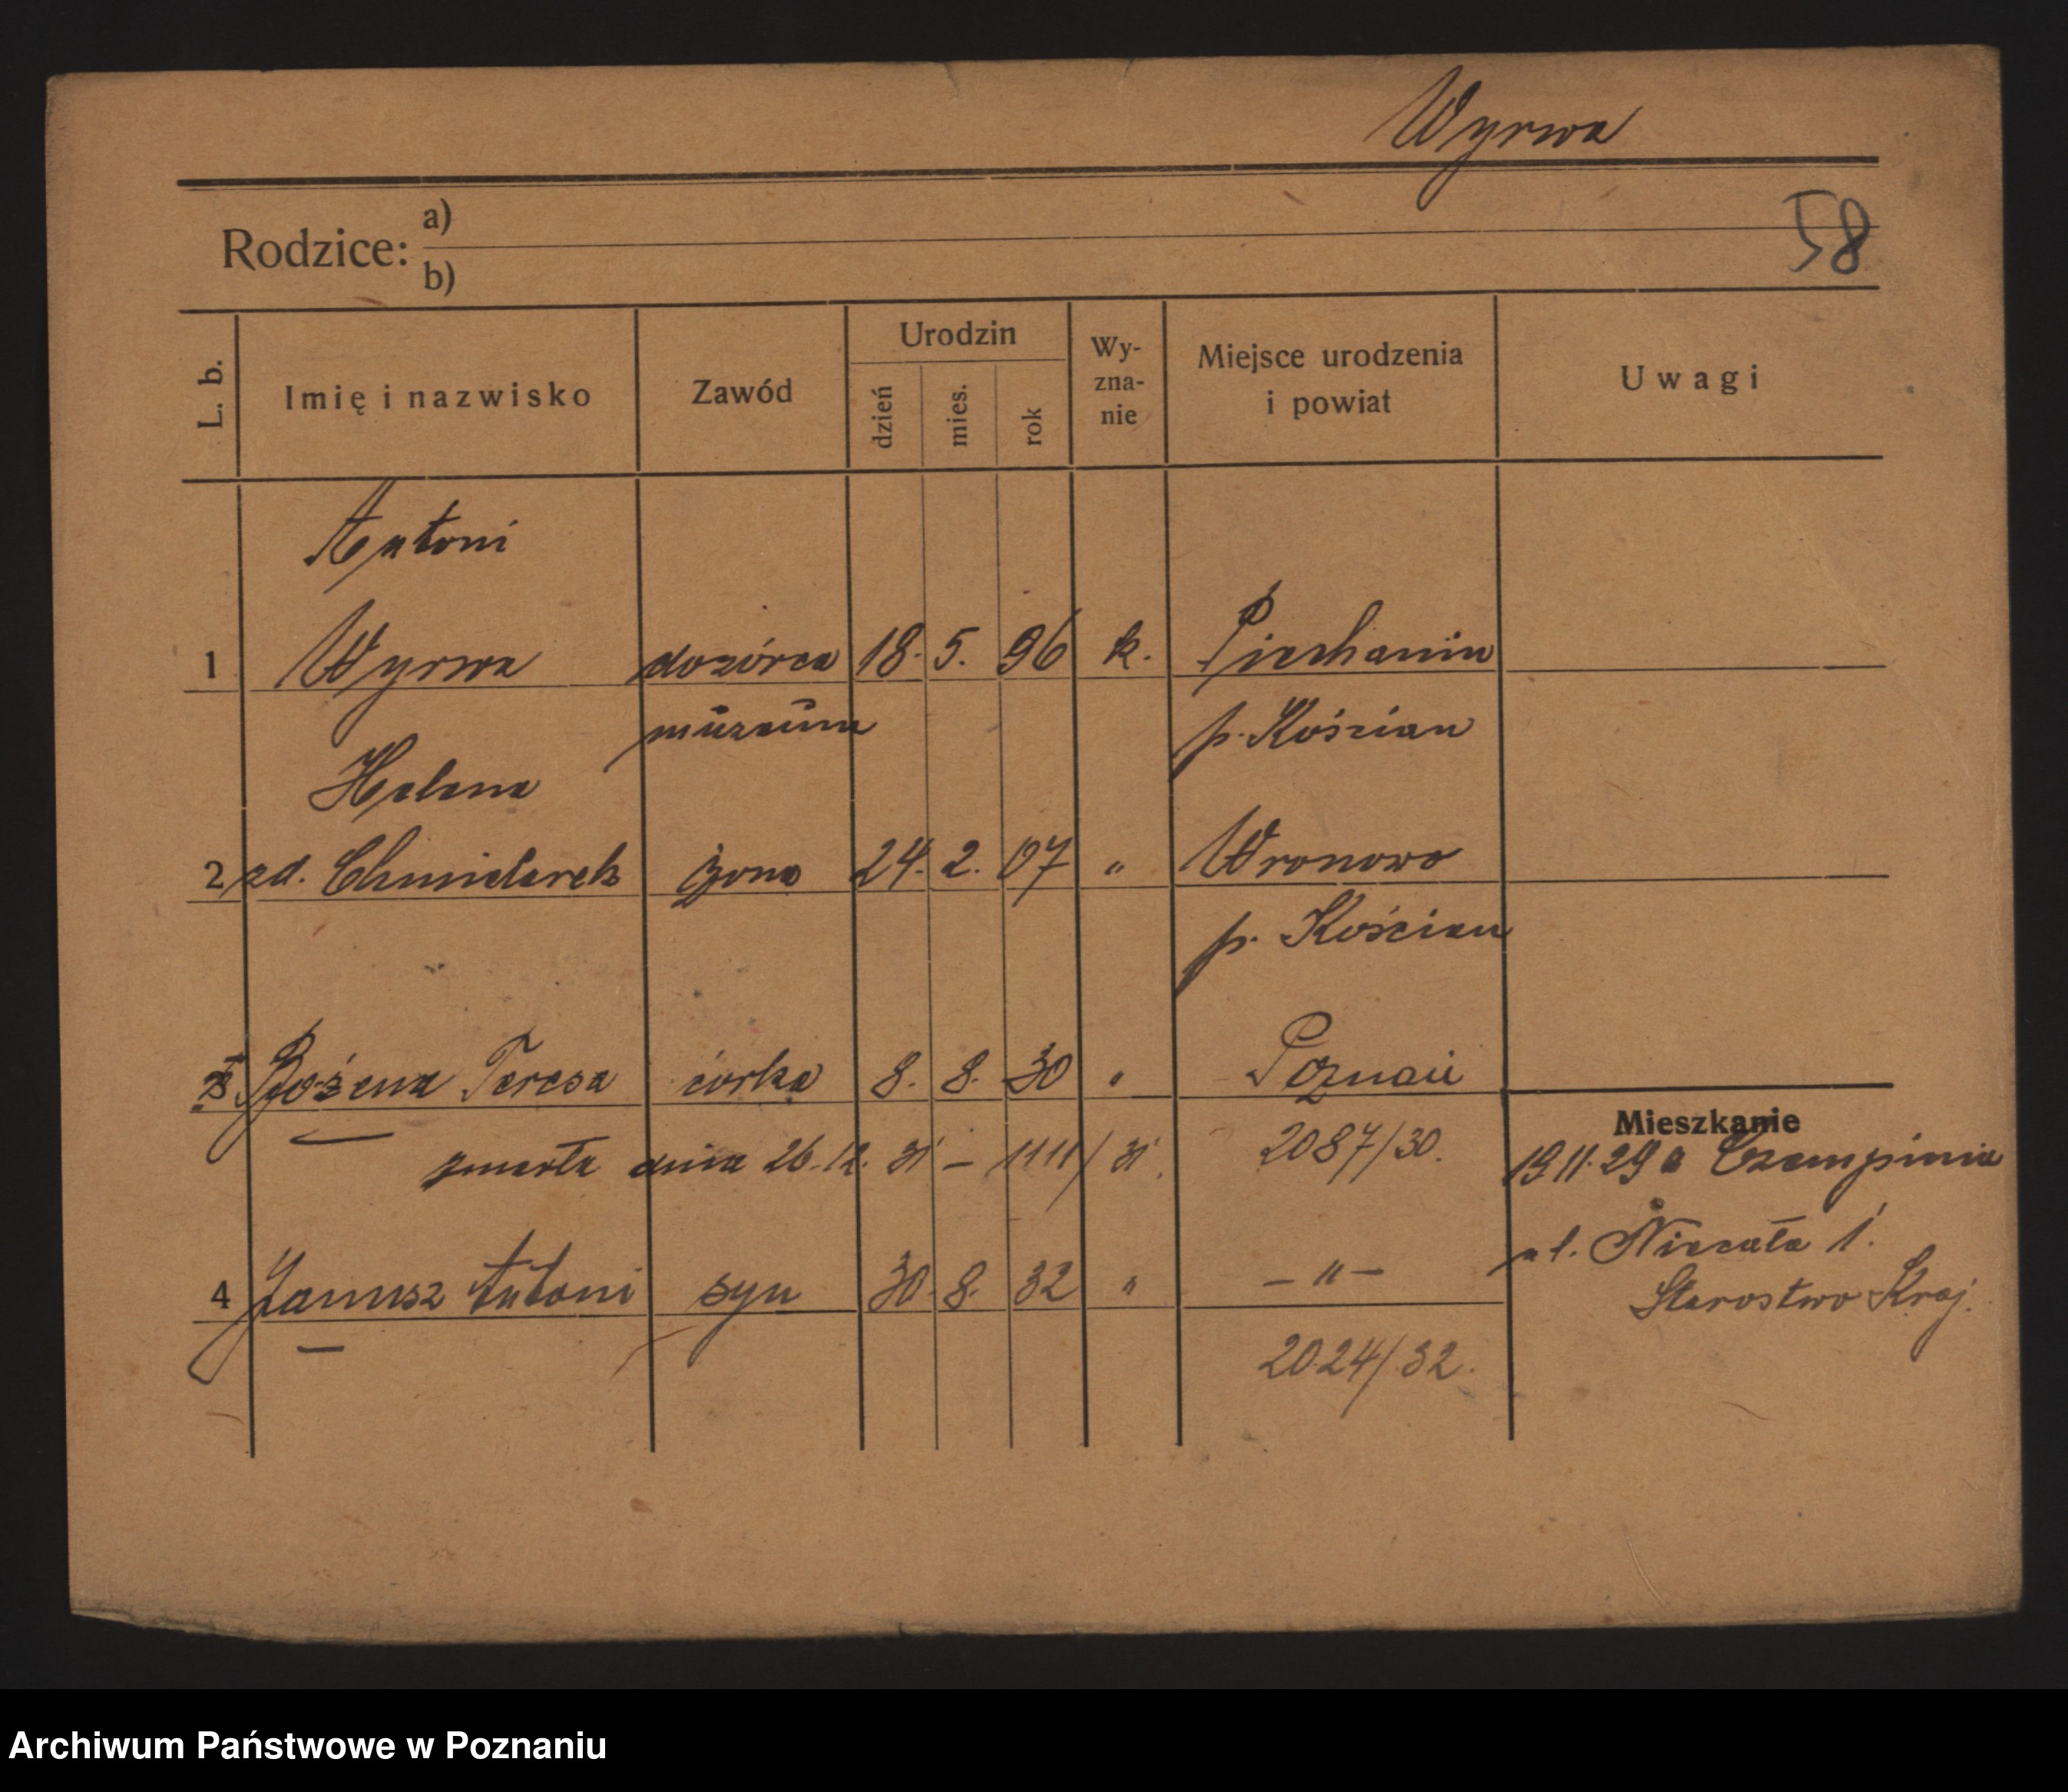 Wyrwa
58
Rodzice: a)
b)
L. b. Imię i nazwisko Zawód Urodzin dzień mies. rok Wy-zna-nie Miejsce urodzenia i powiat Uwagi
Antoni
1 Wyrwa dozórca 18. 5. 96 k. Piechanin
muzeum p. Kościan
Helena
2 zd. Chmielarek żona 24. 2. 07 " Wronowo
p. Kościan
3 Bożena Teresa córka 8. 8. 30 " Poznań
zmarła dnia 26.12. 31 – 1111/31. 2087/30.
4 Janusz Antoni syn 30. 8. 32 " – " –
2024/32.
Mieszkanie
19.11.29 a Czempinia
ul. Niecała 1.
Starostwo Kraj.
Archiwum Państwowe w Poznaniu